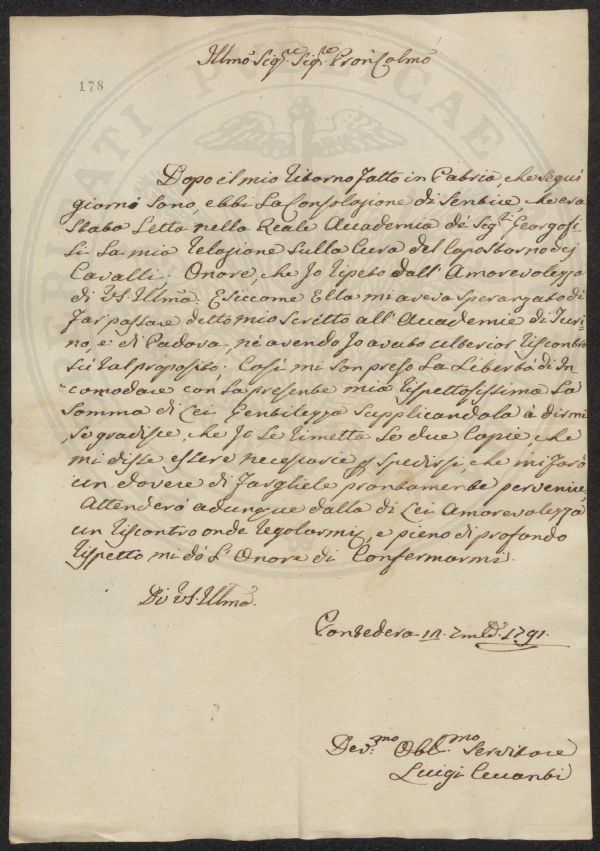 Illmo Sigre Sigre Pron Colmo
178
Dopo il mio ritorno fatto in Patria, che seguì
giorni sono, ebbi La Consolazione di Sentire che era
Stata Letta nella Reale Accademia de Sigri Georgofi
li La mia relazione Sulla Cura del Capostorno dei
Cavalli. Onore, che Jo ripeto dall' Amorevolezza
di VS. Illma. E siccome Ella mi aveva Speranzato di
far passare detto mio Scritto all' Accademie di Turi-
no, e di Padova, nè avendo Jo avuto ulterior riscontro
Sù tal proposito; Così mi Son preso La Libertà di In
comodare con La presente mia rispettosissima La
Somma di Lei Gentilezza Supplicandola à dirmi
Se gradisce, che Jo Le rimetta Le due Copie che
mi disse essere necessarie p Spedirsi, che mi farò
un dovere di fargliele prontamente pervenire.
Attenderò adunque dalla di Lei Amorevolezza
un riscontro onde regolarmi, e pieno di profondo
rispetto mi dò L' Onore di Confermarmi.
Di VS. Illma.
Pontedera 1791.
Dev.mo Obb.mo Servitore
Luigi
PUBLICAE